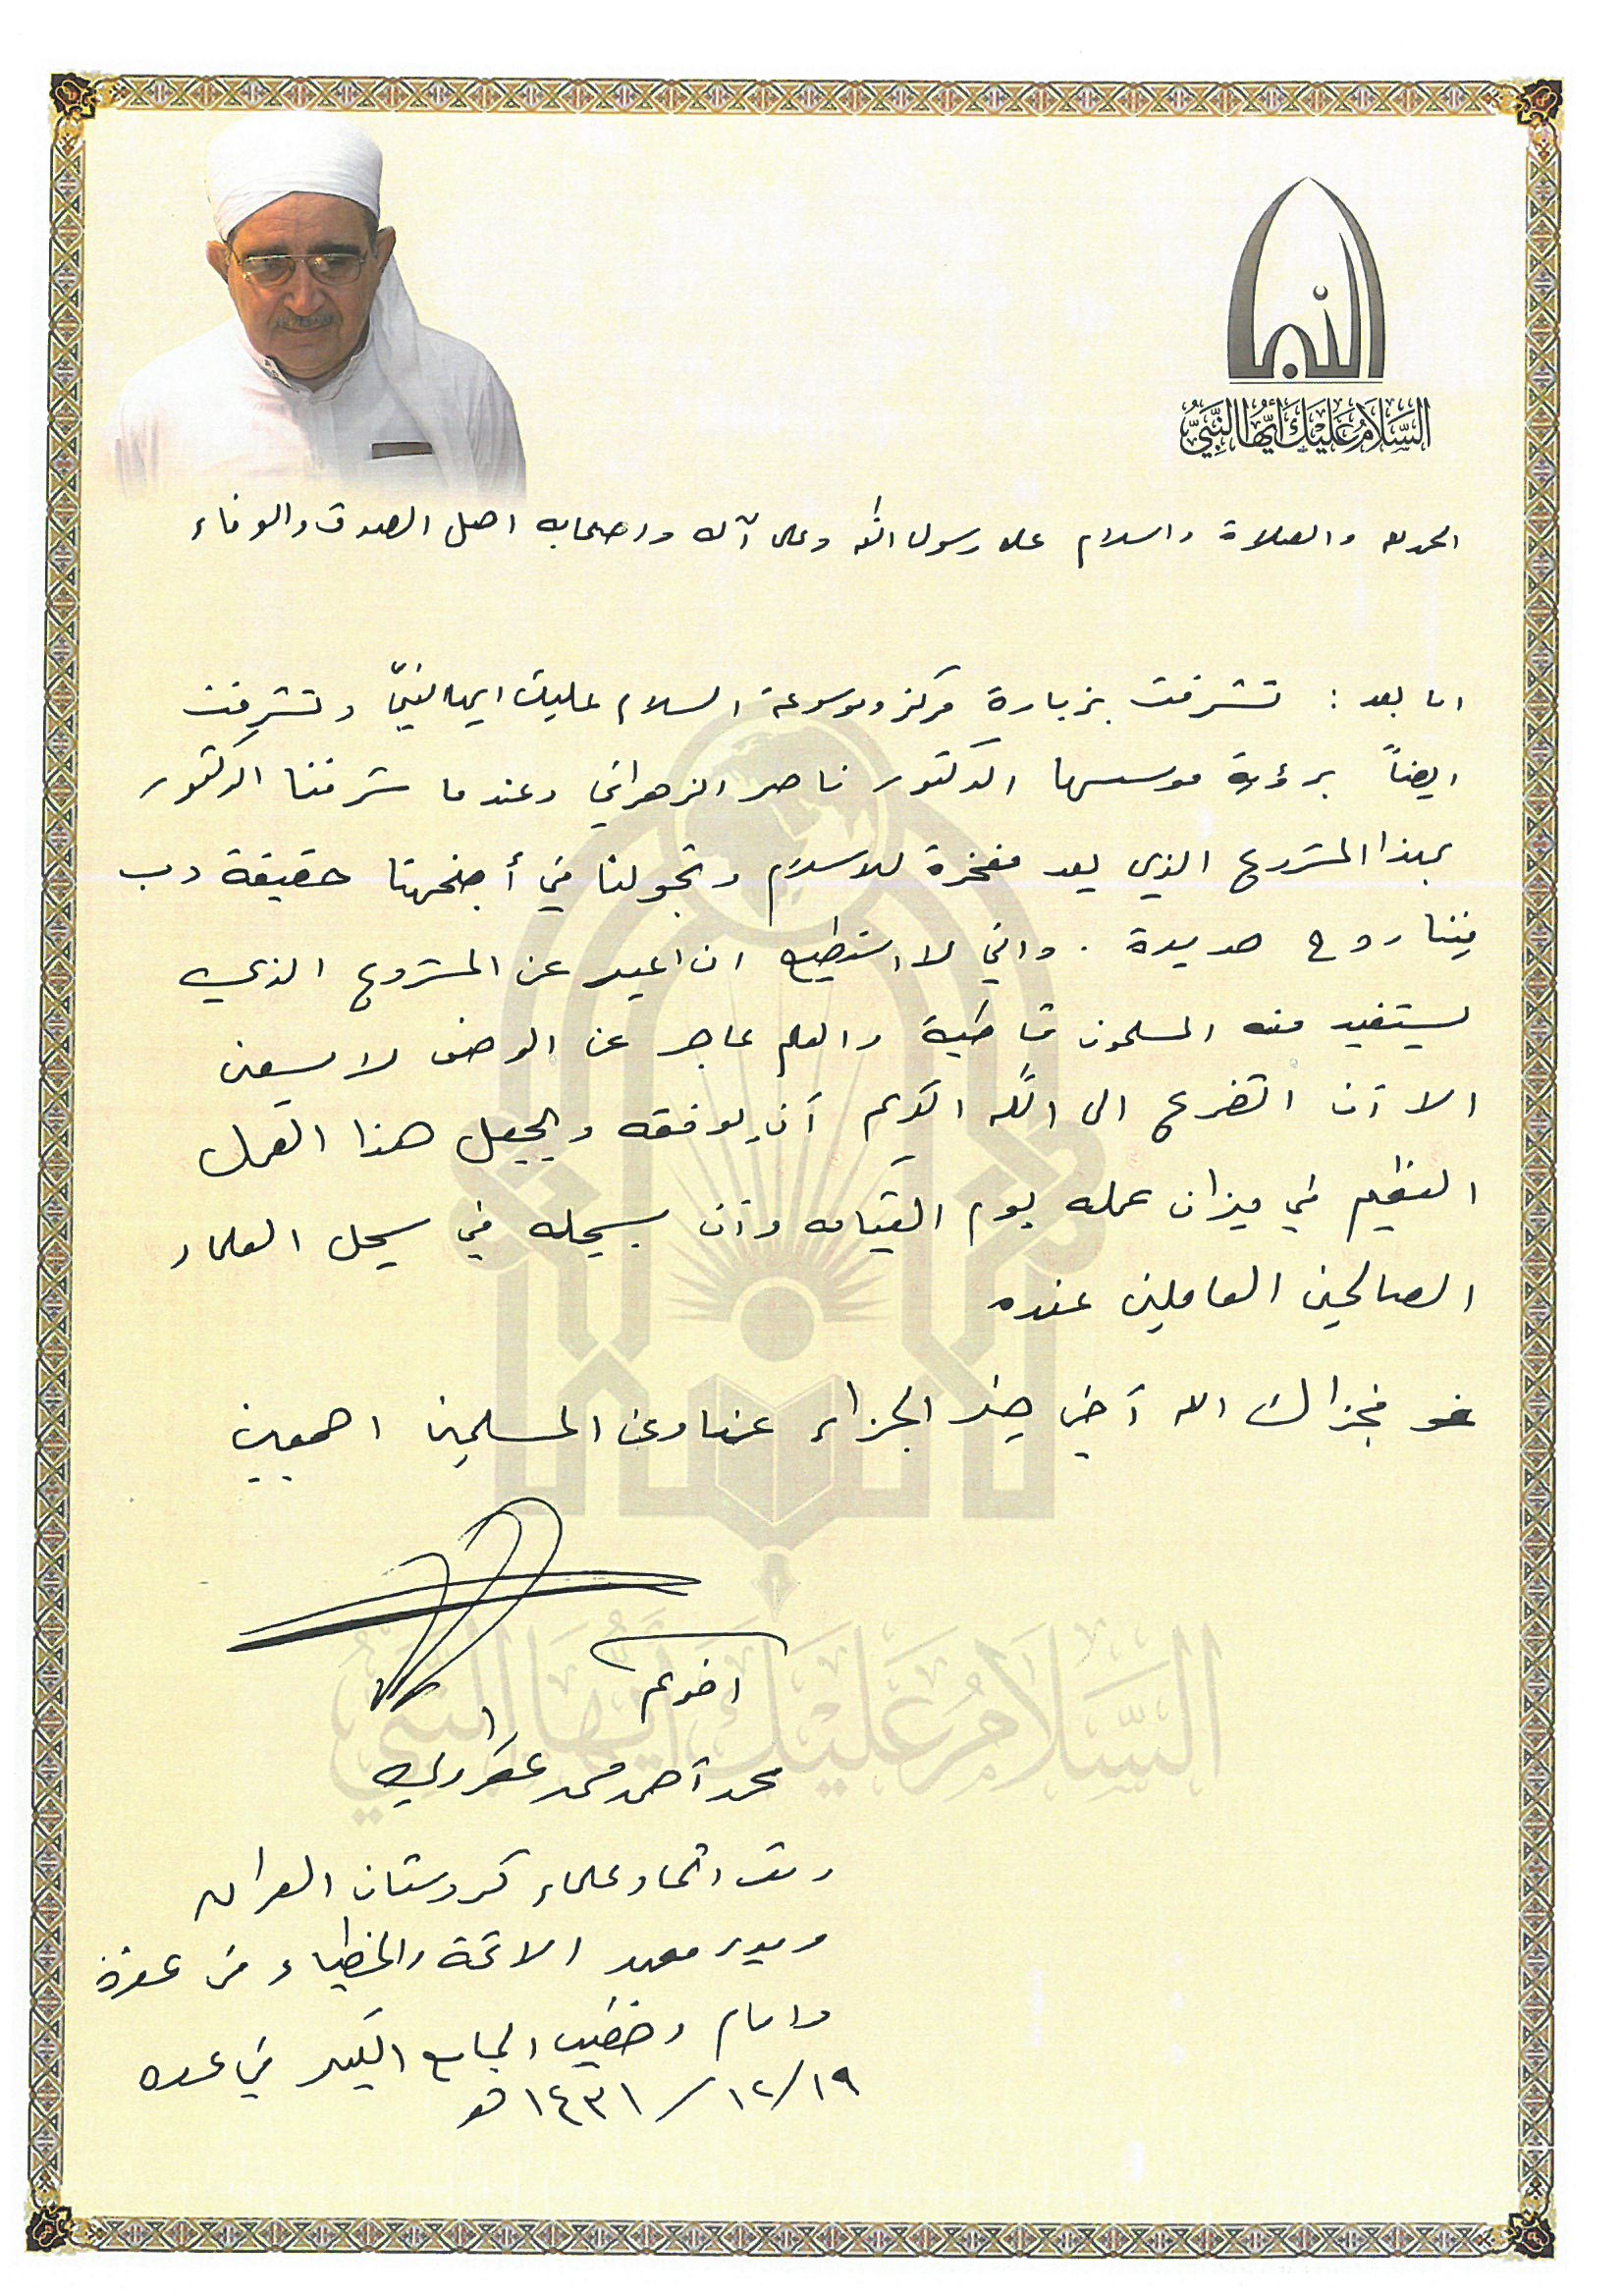 السلام عليك أيها النبي
الحمد لله والصلاة والسلام على رسول الله وعلى آله واصحابه اهل الصدق والوفاء
اما بعد : تشرفت بزيارة مركز وموسوعة السلام عليك ايها النبيّ وتشرفت
ايضاً برؤية موسسها الدكتور ناصر الزهراني وعندما شرفنا الدكتور
بهذا المشروع الذي يعد مفخرة للاسلام وتجولنا في أجنحهتا حقيقة دب
فينا روح جديدة . واني لا استطيع ان اعبر عن المشروع الذي
يستفيد منه المسلمون قاطبة والقلم عاجز عن الوصف لا يسعني
الا أن اتضرع الى الله الكريم أن يوفقه ويجعل هذا العمل
العظيم في ميزان عمله يوم القيامه وأن يسجله في سجل العلماء
الصالحين العاملين عنده
فجزاك الله أخي خير الجزاء عنا وعن المسلمين اجمعين
اخوكم
محمد أحمد محمد عقراوي
اتحاد علماء كردستان العراق
ومدير معهد الائمة والخطباء في عقرة
وامام وخطيب الجامع الكبير في عقره
١٩/ ١٢/ ١٤٣١ هـ
السلام عليك أيها النبي